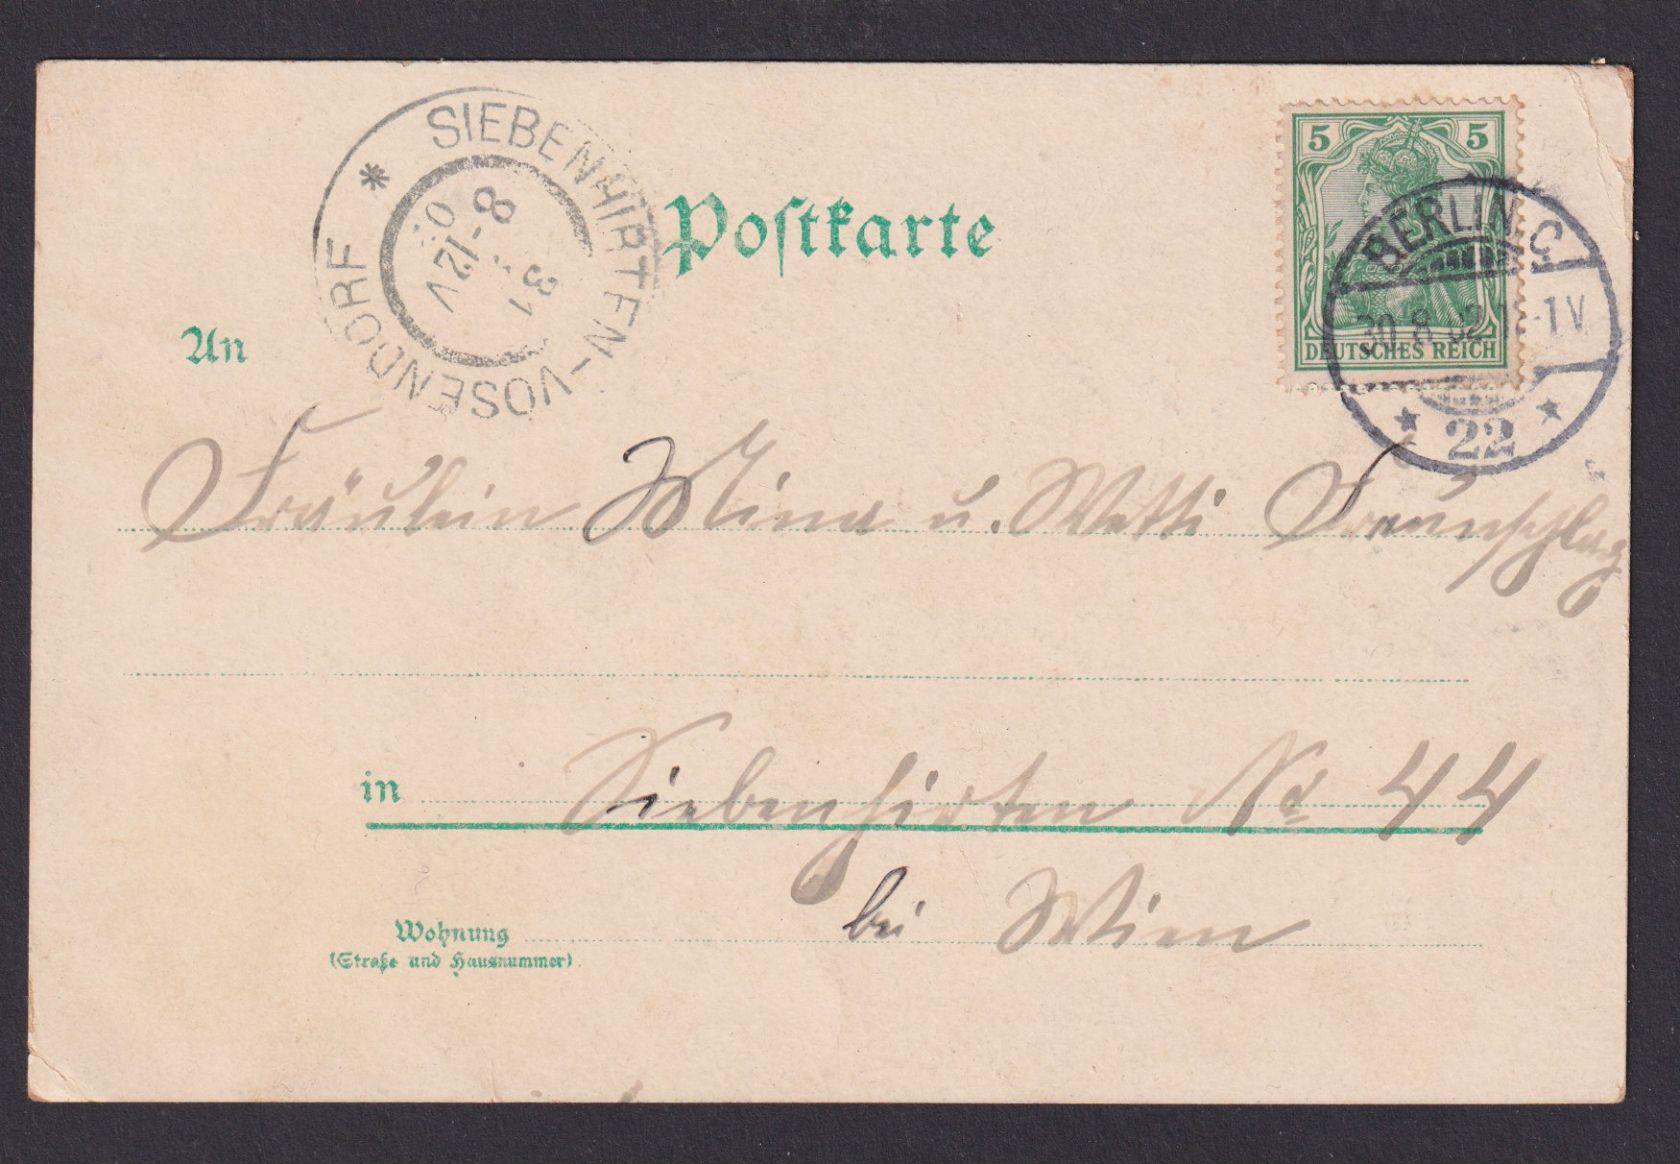 SIEBENHIRTEN-VOSENDORF *
8-12V
31
Postkarte
5 5
DEUTSCHES REICH
BERLIN. C.
30 8 02 -1V
* 22 *
An
Fräulein Mina u. Wetti
in Siebenhirten No 44
Wohnung bei Wien
(Straße und Hausnummer).